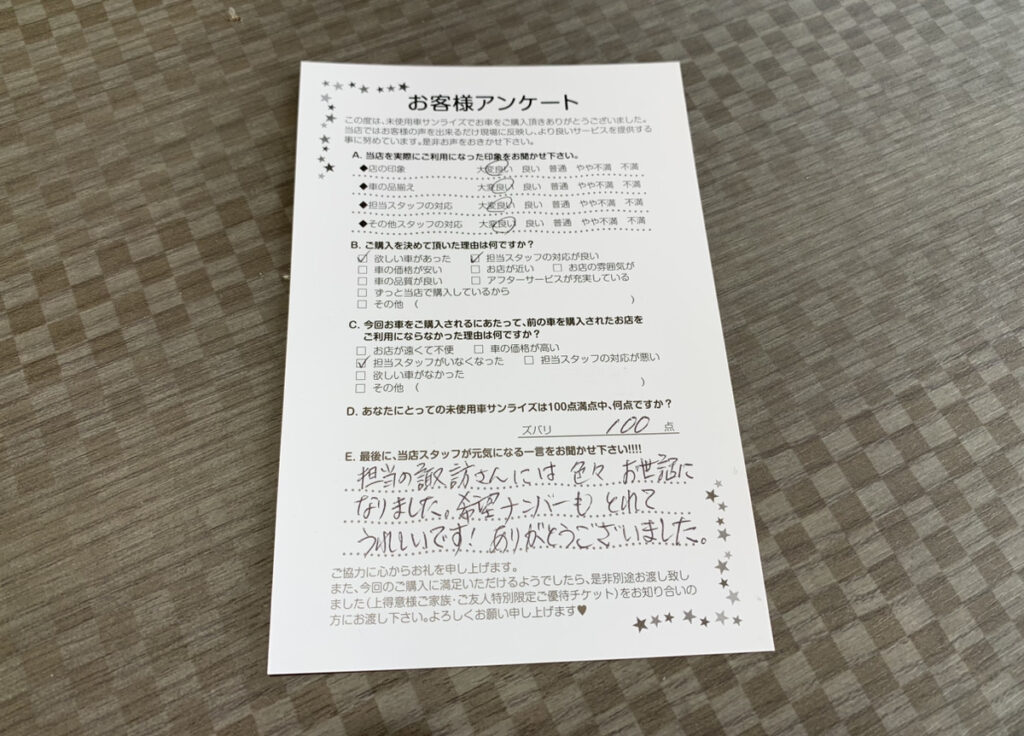 お客様アンケート
この度は、未使用車サンライズでお車をご購入頂きありがとうございました。
当店ではお客様の声を出来るだけ現場に反映し、より良いサービスを提供する
事に努めています。是非お声をおきかせ下さい。
A. 当店を実際にご利用になった印象をお聞かせ下さい。
◆店の印象 大変良い 良い 普通 やや不満 不満
◆車の品揃え 大変良い 良い 普通 やや不満 不満
◆担当スタッフの対応 大変良い 良い 普通 やや不満 不満
◆その他スタッフの対応 大変良い 良い 普通 やや不満 不満
B. ご購入を決めて頂いた理由は何ですか?
☑ 欲しい車があった ☑ 担当スタッフの対応が良い
□ 車の価格が安い □ お店が近い □ お店の雰囲気が
□ 車の品質が良い □ アフターサービスが充実している
□ ずっと当店で購入しているから
□ その他 ( )
C. 今回お車をご購入されるにあたって、前の車を購入されたお店を
ご利用にならなかった理由は何ですか?
□ お店が遠くて不便 □ 車の価格が高い
☑ 担当スタッフがいなくなった □ 担当スタッフの対応が悪い
□ 欲しい車がなかった
□ その他 ( )
D. あなたにとっての未使用車サンライズは100点満点中、何点ですか?
ズバリ 100 点
E. 最後に、当店スタッフが元気になる一言をお聞かせ下さい!!!!
担当の諏訪さんには色々お世話に
なりました。希望ナンバーもとれて
うれしいです!ありがとうございました。
ご協力に心からお礼を申し上げます。
また、今回のご購入に満足いただけるようでしたら、是非別途お渡し致し
ました(上得意様ご家族・ご友人特別限定ご優待チケット)をお知り合いの
方にお渡し下さい。よろしくお願い申し上げます♥